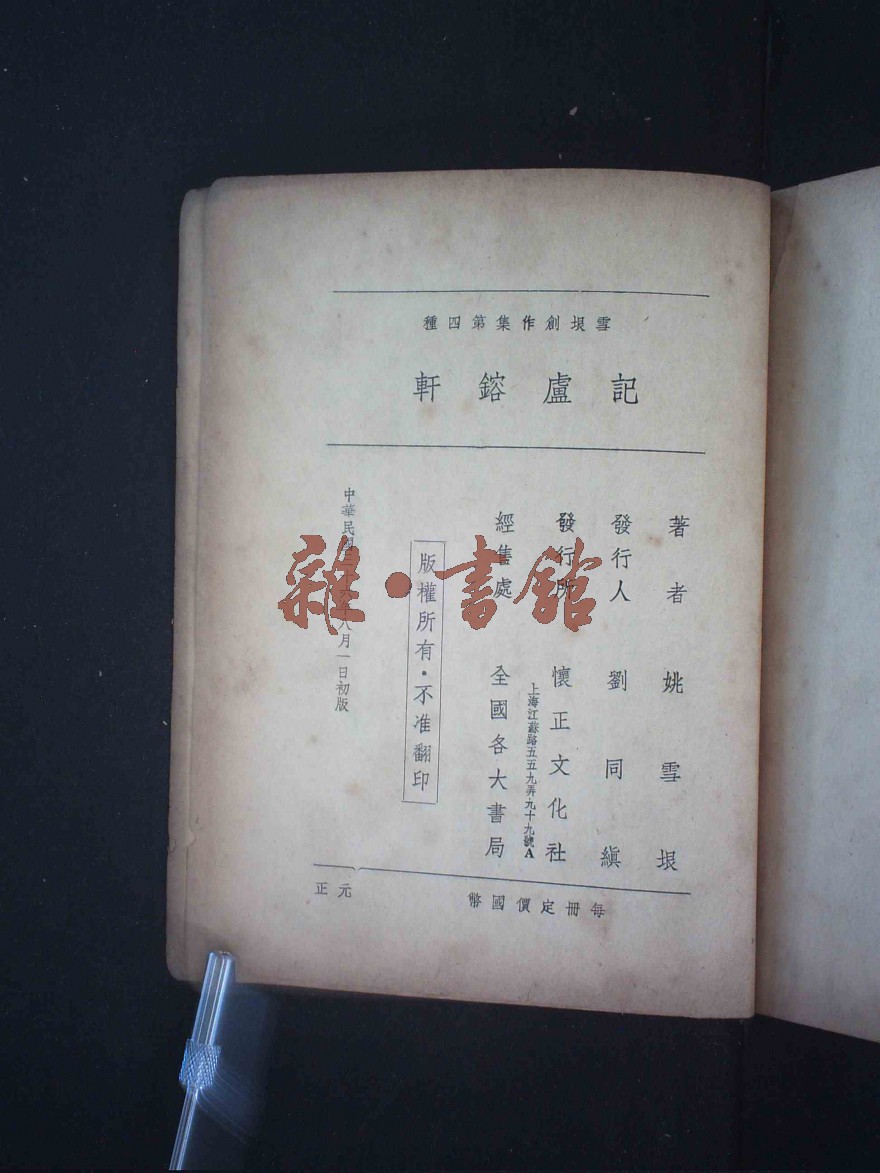 雪垠創作集第四種
記盧鎔軒
著者 姚雪垠
發行人 劉同縝
發行所 懷正文化社
上海江蘇路五五九弄九十九號A
經售處 全國各大書局
版權所有·不准翻印
中華民國 六年八月一日初版
每冊定價國幣 元正
雜·書館